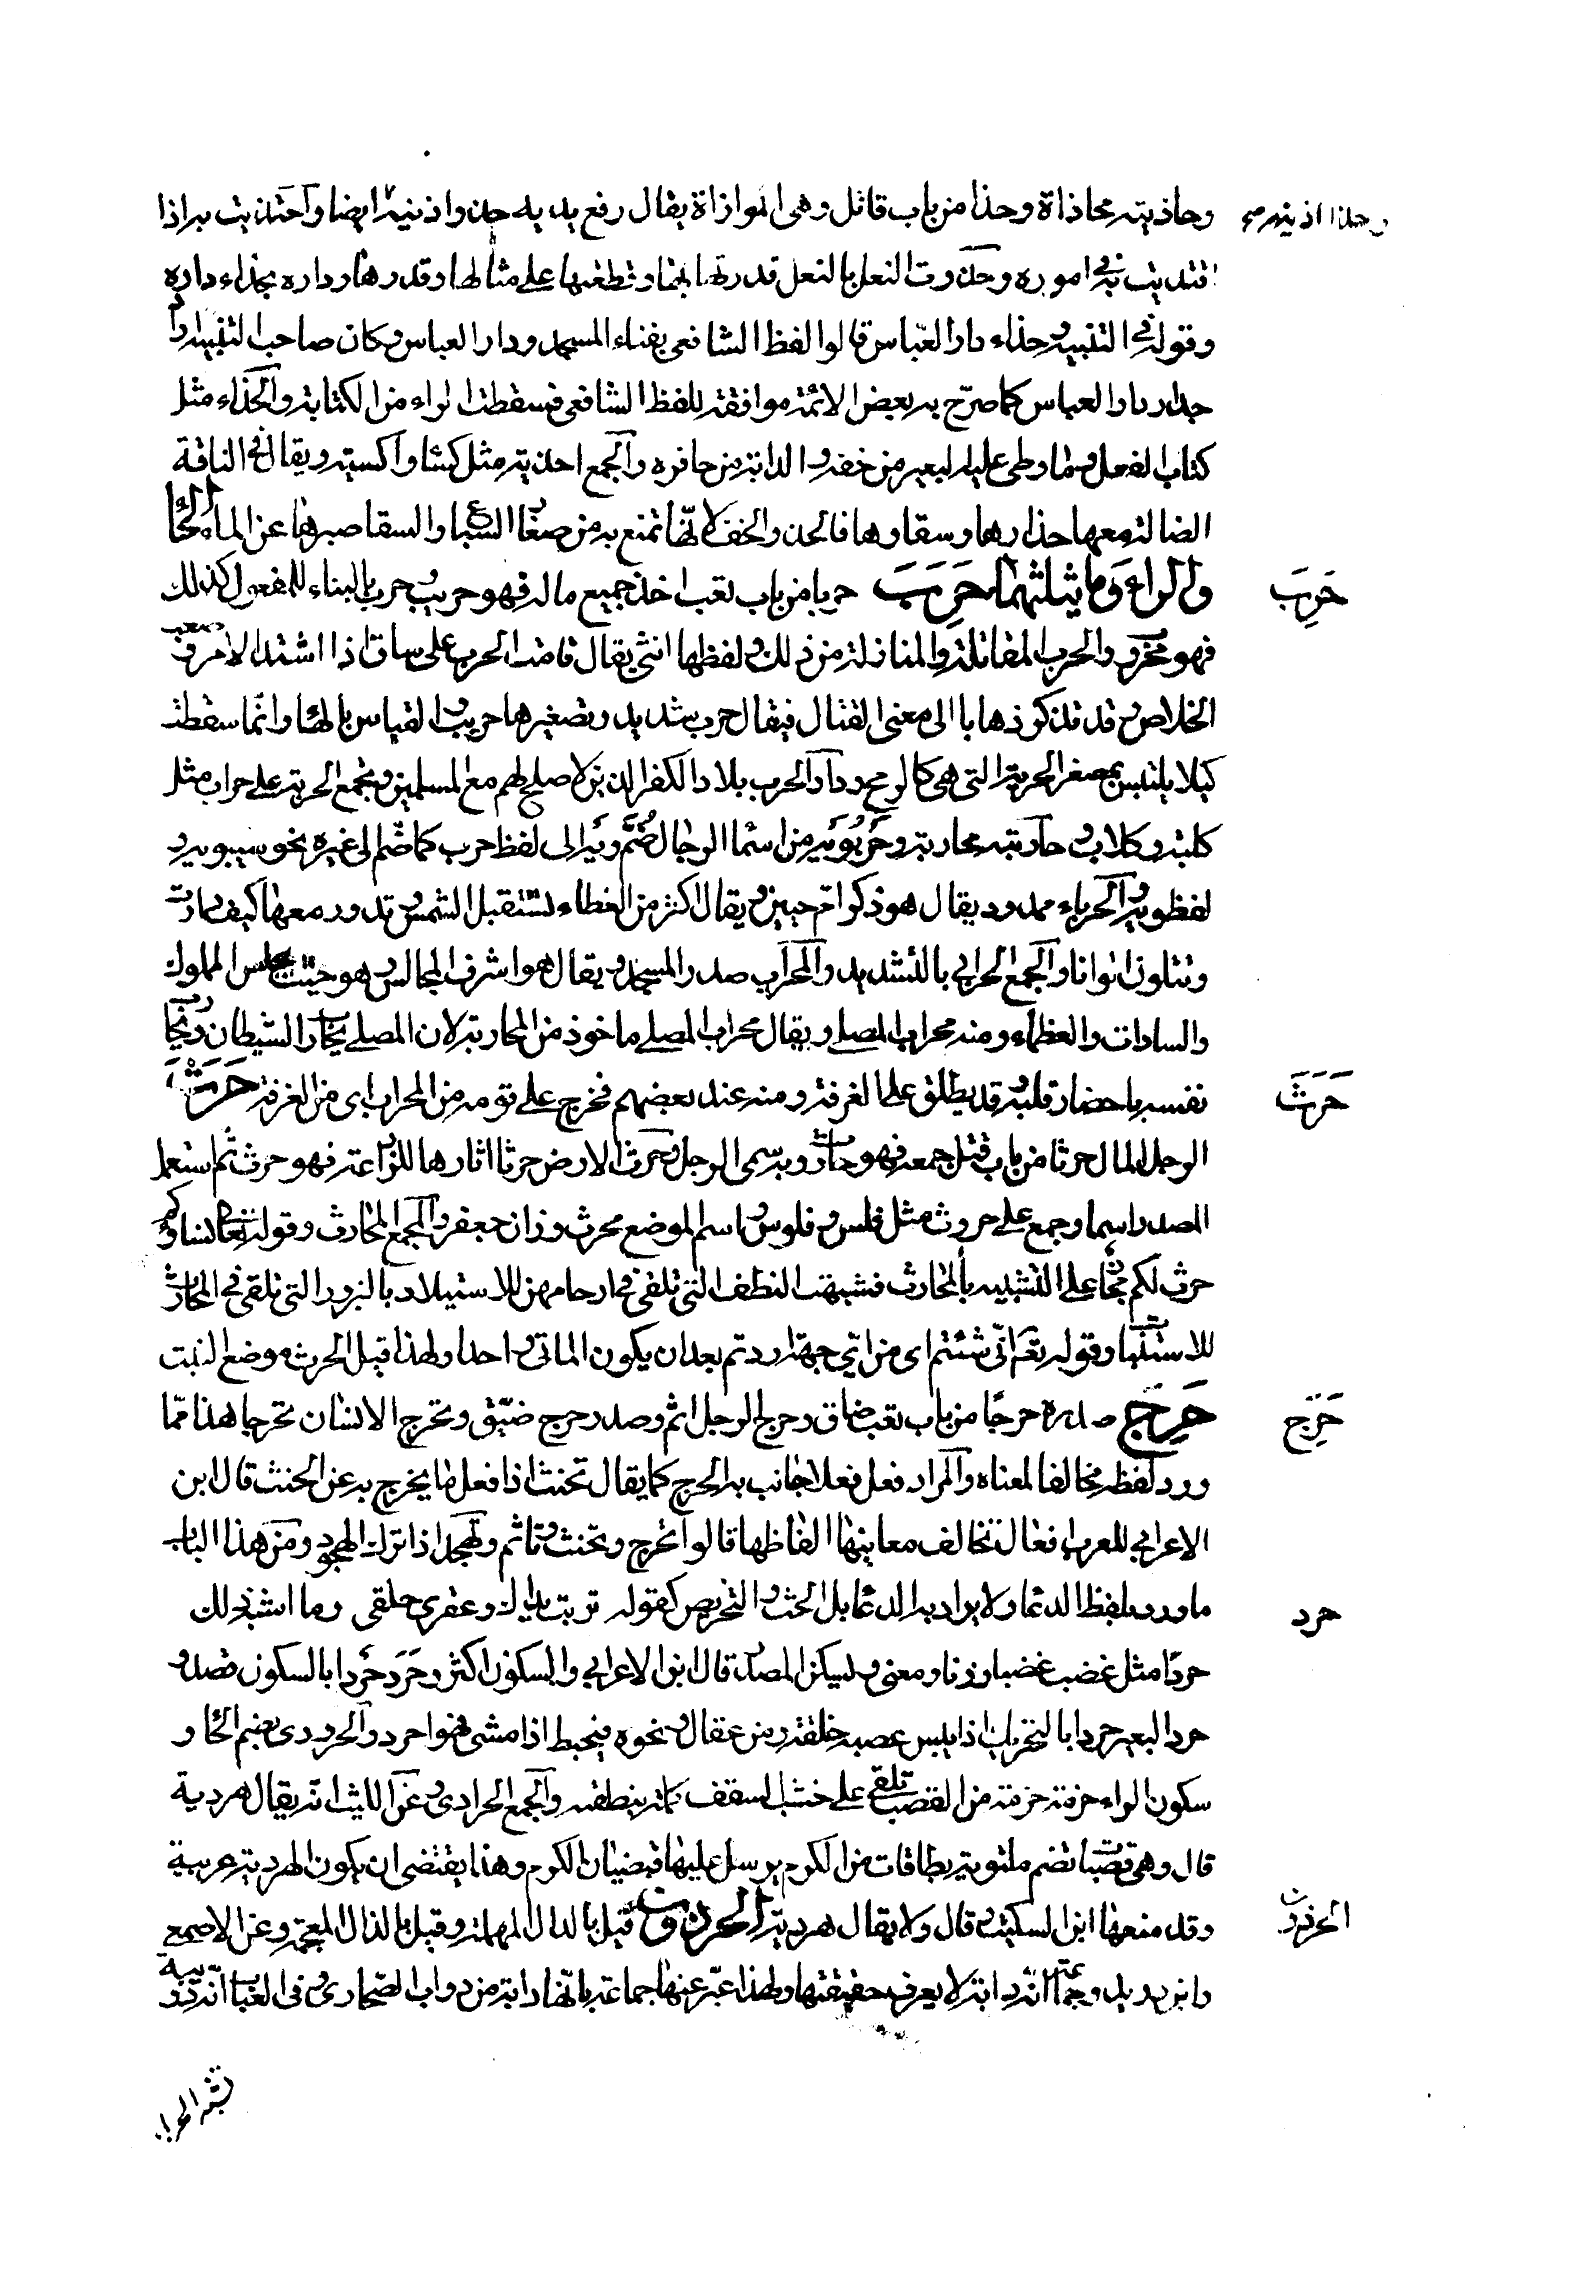 وحاذيته محاذاة وحذا من باب قاتل وهى الموازاة يقال رفع يديه حذو اذنيه ايضا واحتذيت به اذا
وحذا اذنيه صح
اقتديت به فى اموره وحذوت النعل بالنعل قدرتها بها وقطعتها على مثالها وقدرها وداره بحذاء داره
وقوله فى التنبيه وحذاء دار العباس قالوا لفظ الشافعى بفناء المسجد ودار العباس وكان صاحب التنبيه اراد
جدار دار العباس كما صرّح به بعض الائمة موافقة للفظ الشافعى فسقطت الراء من الكتابة والحذاء مثل
كتاب النعل وما وطئ عليه البعير من خفه والدابة من حافره والجمع احذية مثل كساء واكسية ويقال فى الناقة
الضالة معها حذاؤها وسقاؤها فالحذاء الخف لانّها تمتنع به من صغار السباع والسقا صبرها عن الماء الحاء
حَرِبَ
والراء وما يثلثهما حَرِبَ حربا من باب تعب اخذ جميع ماله فهو حريب وحرب بالبناء للمفعول كذلك
فهو محروب والحرب المقاتلة والمنازلة من ذلك ولفظها انثى يقال قامت الحرب على ساق اذا اشتد الامر وصعب
الخلاص وقد تذكر ذهابا الى معنى القتال فيقال حرب شديد وتصغيرها حريب والقياس بالهاء وانّما سقطت
كيلا يلتبس بمصغر الحربة التى هى كالرمح ودار الحرب بلاد الكفر الذين لا صلح لهم مع المسلمين وتجمع الحربة على حراب مثل
كلبة وكلاب وحاربته محاربة وحَرْبُوَيْه من اسما الرجال ضُمَّ ويه الى لفظ حرب كما ضمّ الى غيره نحو سيبويه و
نفطويه والحرباء ممدود يقال هو ذكر امّ حبين ويقال اكبر من العظاء تستقبل الشمس وتدور معها كيف دارت
وتتلون الوانا والجمع الحرابى بالتشديد والمحراب صدر المسجد ويقال هو اشرف المجالس وهو حيث يجلس الملوك
والسادات والعظماء ومنه محراب المصلى ويقال محراب المصلى ماخوذ من المحاربة لان المصلى يحارب الشيطان ويحارب
حَرَثَ
نفسه باحضار قلبه وقد يطلق على الغرفة ومنه عند بعضهم فخرج على قومه من المحراب اى من الغرفة حَرَثَ
الرجل المال حرثا من باب قتل جمعه فهو حارث وبه سمى الرجل وحرث الارض حرثا اثارها للزراعة فهو حرث ثم استعمل
المصدر اسما وجمع على حروث مثل فلس وفلوس واسم الموضع محرث وزان جعفر والجمع المحارث وقوله تعالى نساؤكم
حرث لكم مجاز على التشبيه بالمحارث فشبهت النطف التى تلقى فى ارحامهن للاستيلاد بالبزور التى تلقى فى المحارث
للاستنبات وقوله تعالى انّى شئتم اى من اىّ جهة اردتم بعد ان يكون الماتى واحدا ولهذا قيل الحرث موضع النبت
حَرِج
حَرِجَ صدره حرجًا من باب تعب ضاق وحرج الرجل اثم وصدر حرج ضيّق وتحرج الانسان تحرجا هذا ممّا
ورد لفظه مخالفا لمعناه والمراد فعل فعلا جانب به الحرج كما يقال تحنث اذا فعل ما يخرج به عن الحنث قال ابن
الاعرابى للعرب افعال تخالف معانيها الفاظها قالوا تحرج وتحنث وتاثم وتهجد اذا ترك الهجود ومن هذا الباب
ما ورد بلفظ الدعاء ولا يراد به الدعاء بل الحث والتحريض كقوله تربت يداك وعقرى حلقى وما اشبه ذلك
حرد
حردًا مثل غضب غضبا وزنا ومعنى وتسكن المصدر قال ابن الاعرابى والسكون اكثر وحَرَدَ حَرْدا بالسكون قصد و
حرد البعير حردا بالتحريك اذا يبس عصبه خلقة ومن عقال ونحوه فيخبط اذا مشى فهو احرد والحردى بضم الحاء و
سكون الراء حزمة حزمة من القصب تلقى على خشب السقف كلمة نبطية والجمع الحرادى وعن الليث انه يقال هردية
قال وهى قصبات تضم ملتوية بطاقات من الكرم يرسل عليها قضبان الكرم وهذا يقتضى ان يكون الهردية عربية
الحرذون
وقد منعها ابن السكيت قال ولا يقال هردية الحرذون قيل بالدال المهملة وقيل بالذال المعجمة وعن الاصمعى
وابن دريد وجماعة انّه دابة لا يعرف حقيقتها ولهذا عبّر عنها جماعة بانّها دابة من دواب الصحارى وفى العباب انّه دويبة
تشبه الحربا